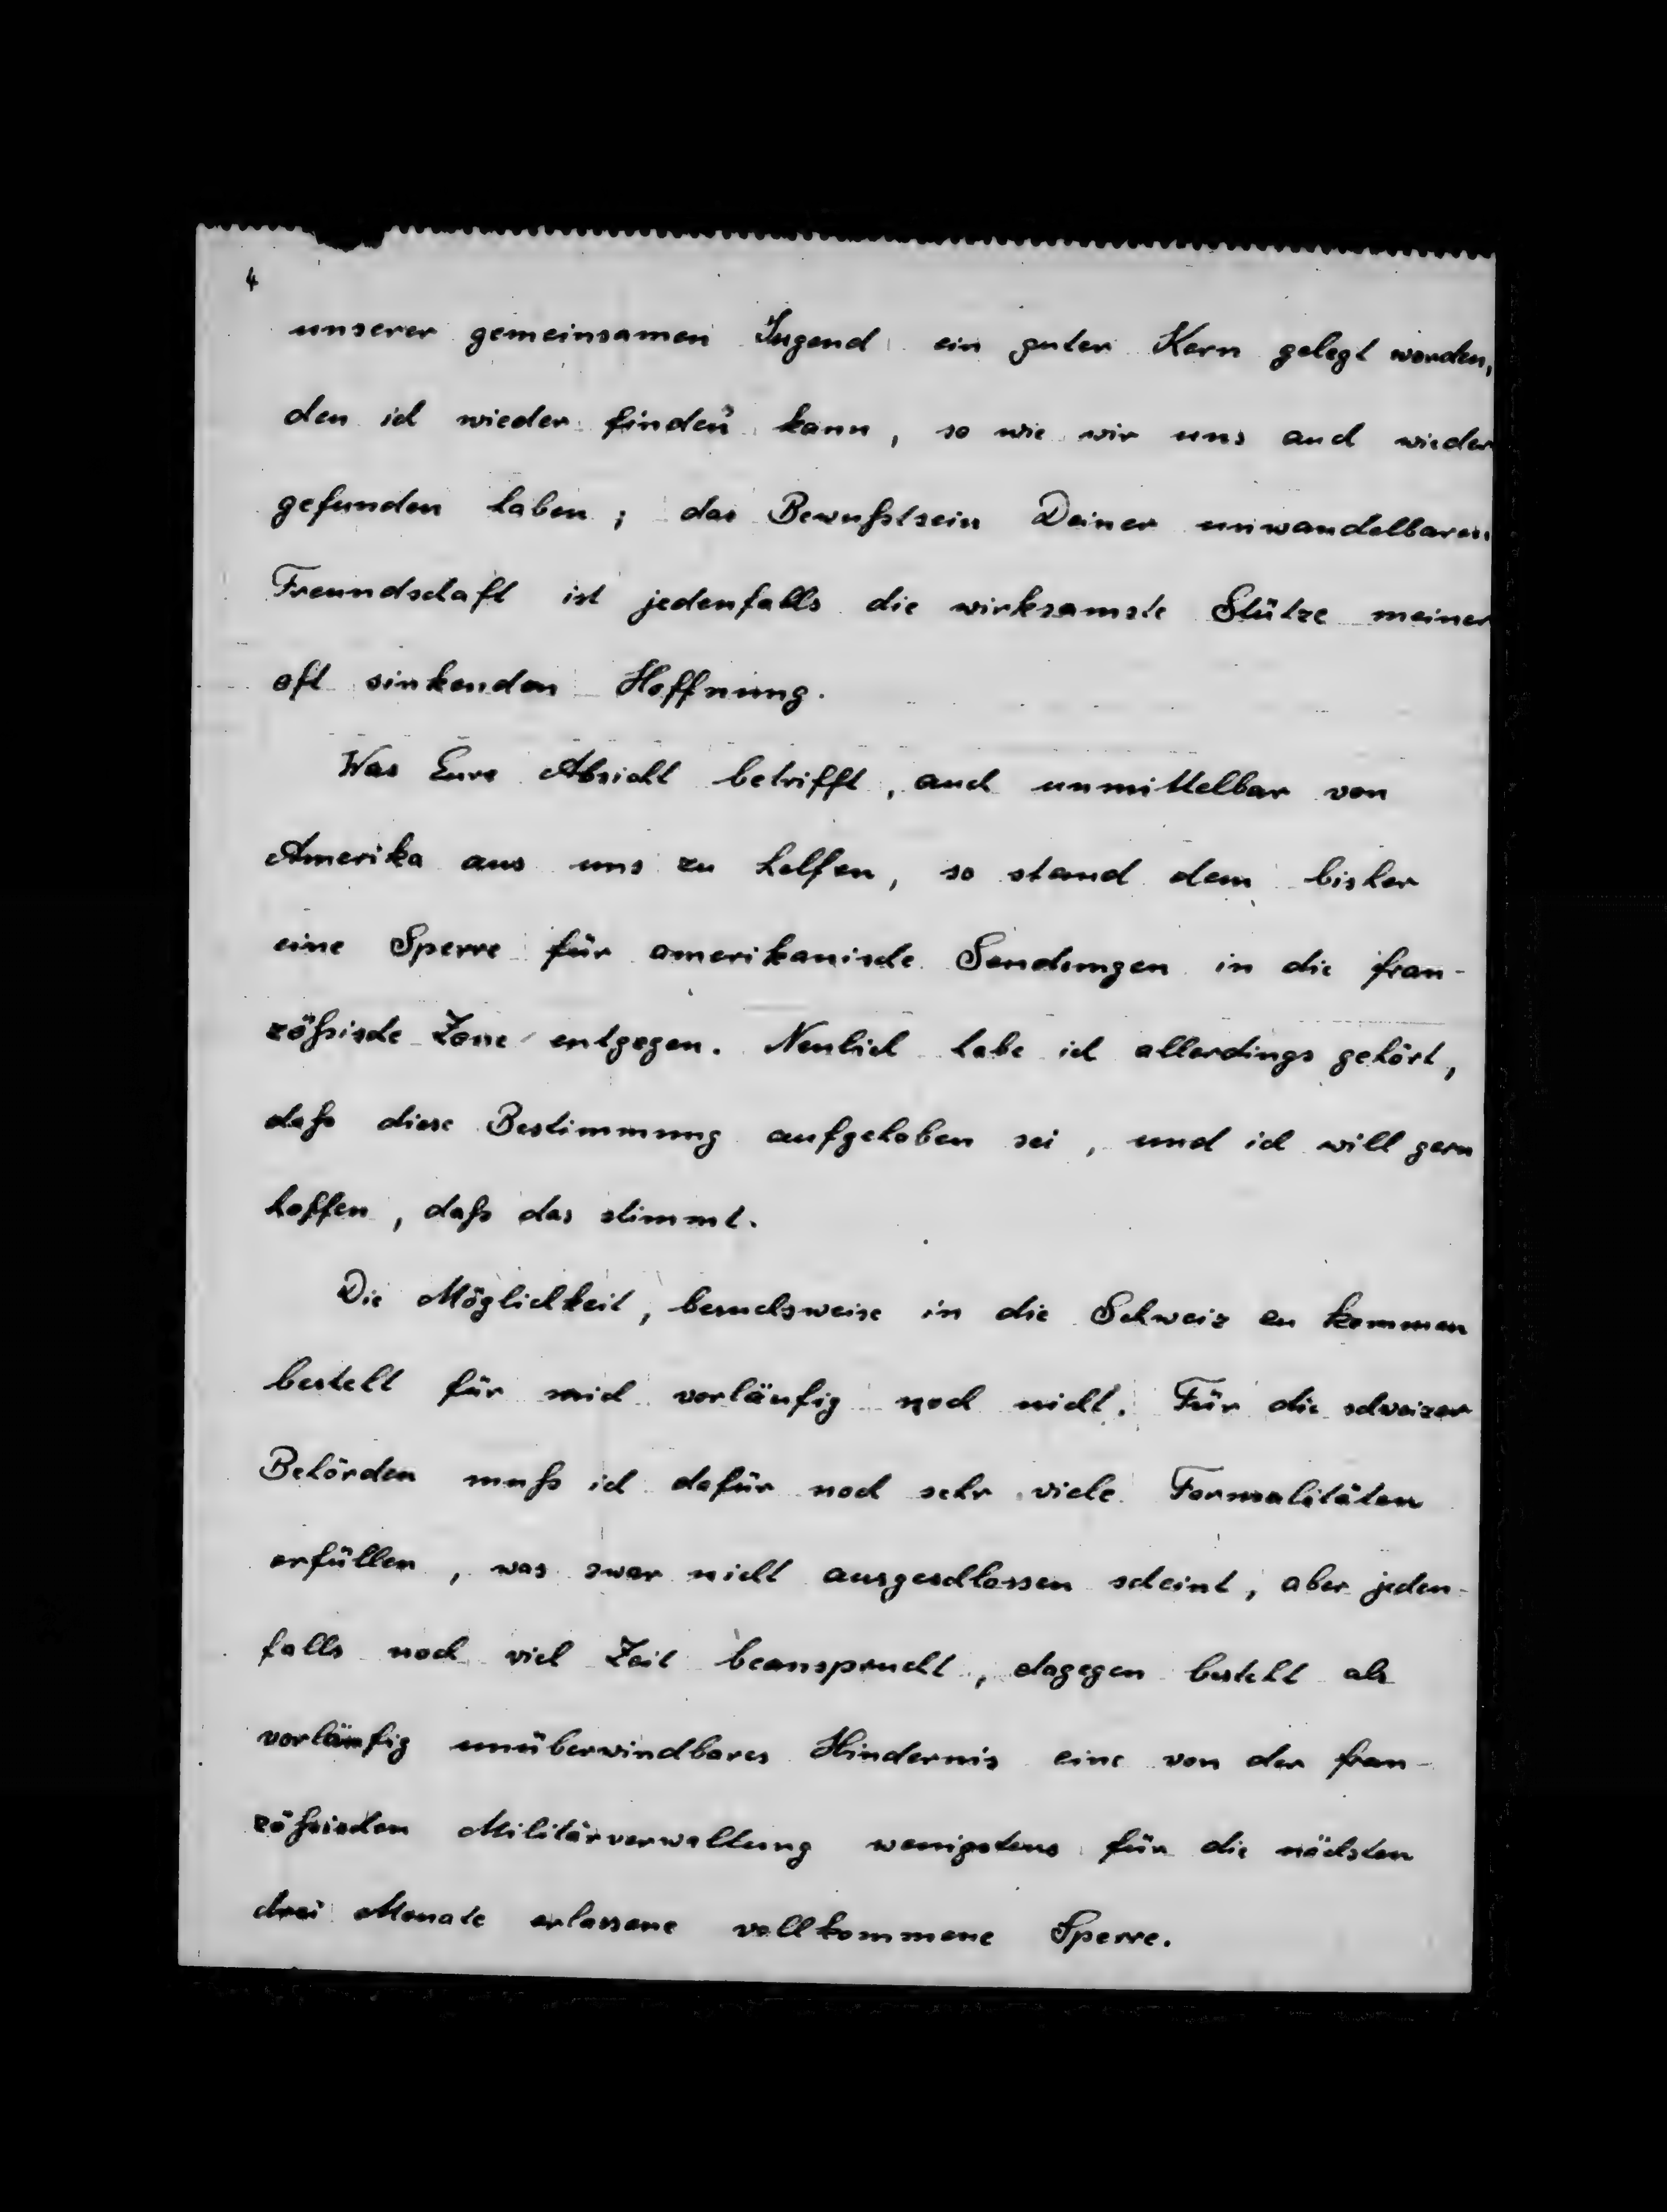 4
unserer gemeinsamen Jugend ein guter Kern gelegt worden,
den ich wieder finden kann, so wie wir uns auch wieder
gefunden haben; das Bewußtsein Deiner unwandelbaren
Freundschaft ist jedenfalls die wirksamste Stütze meiner
oft sinkenden Hoffnung.
Was Eure Absicht betrifft, auch unmittelbar von
Amerika aus uns zu helfen, so stand dem bisher
eine Sperre für amerikanische Sendungen in die fran-
zößische Zone entgegen. Neulich habe ich allerdings gehört,
daß diese Bestimmung aufgehoben sei, und ich will gern
hoffen, daß das stimmt.
Die Möglichkeit, besuchsweise in die Schweiz zu kommen
besteht für mich vorläufig noch nicht. Für die schweizer
Behörden muß ich dafür noch sehr viele Formalitäten
erfüllen, was zwar nicht ausgeschlossen scheint, aber jeden-
falls noch viel Zeit beansprucht, dagegen besteht als
vorläufig unüberwindbares Hindernis eine von der fran-
zößischen Militärverwaltung wenigstens für die nächsten
drei Monate erlassene vollkommene Sperre.